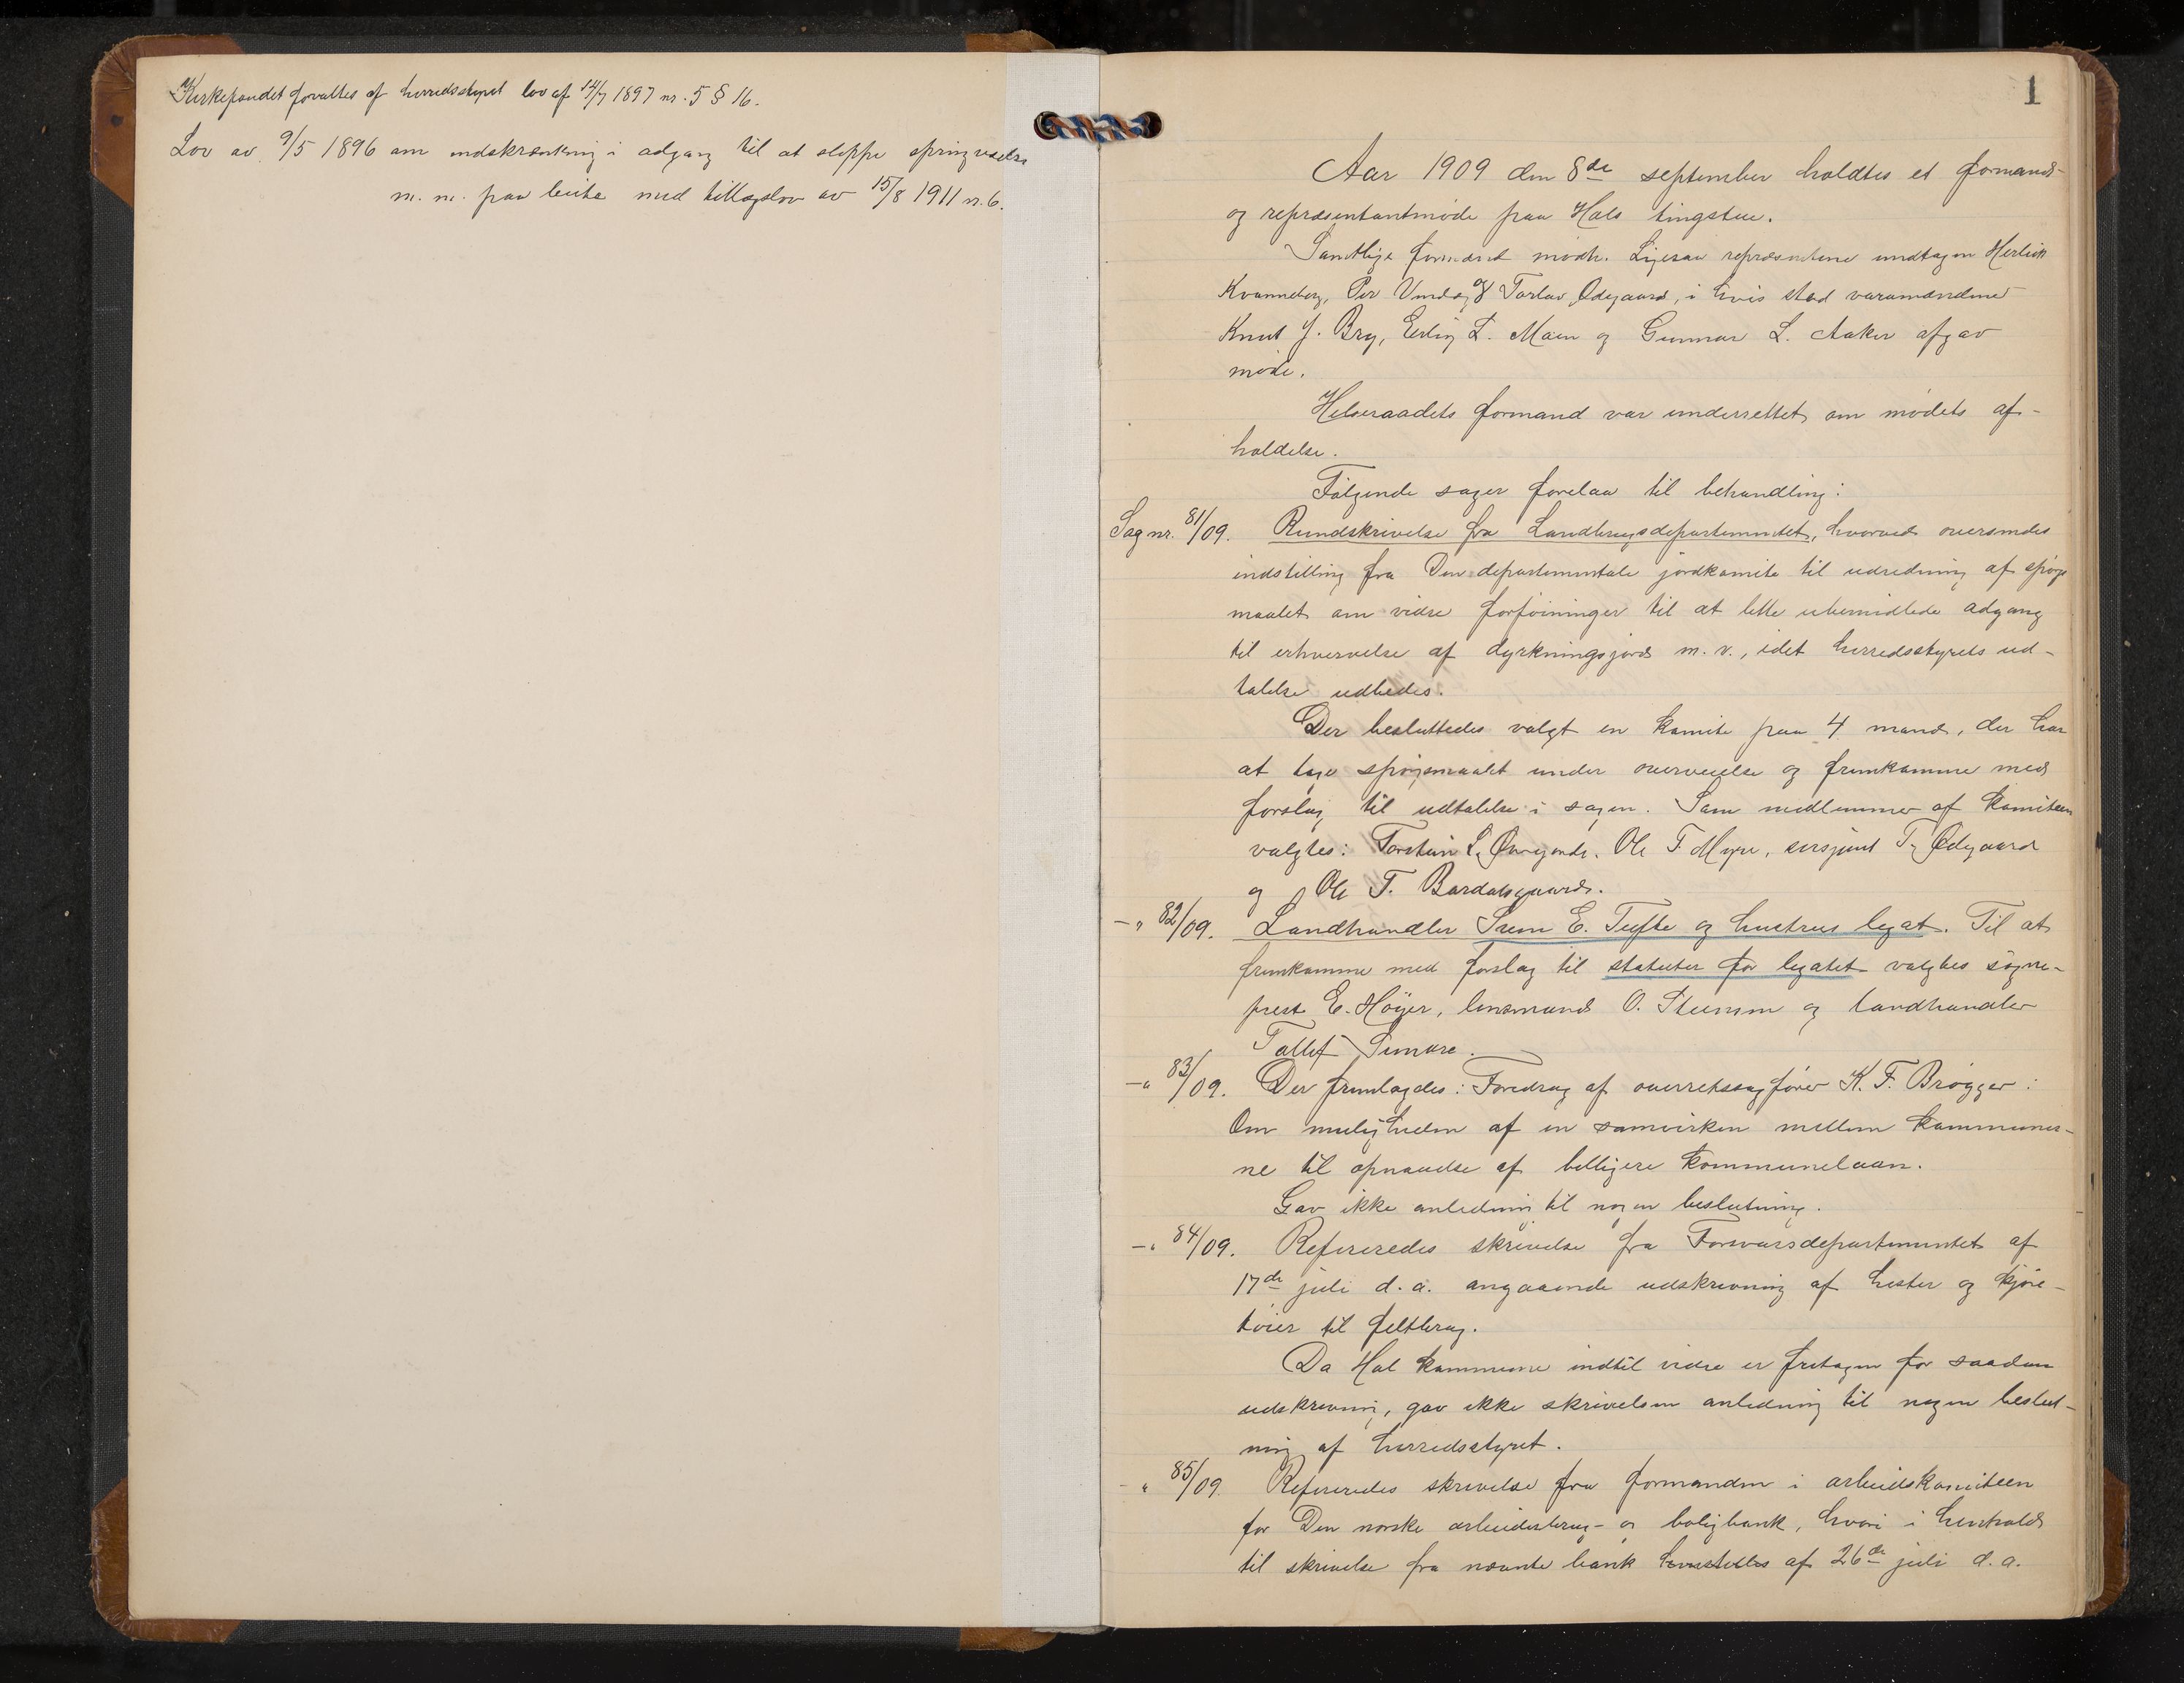 Kirkefondet forvaltes af herredsstyret lov af 14/7 1897 nr. 5 § 16.
Lov av 9/5 1896 om indskrænkning i adgang til at sleppe springvædre
m. m. paa beite med tillægslov av 15/8 1911 n. 6.
1
Aar 1909 den 8de september holdtes et formands-
og repræsentantmöde paa Hols tingstue.
Samtlige formænd mödte. Ligesaa repræsentene undtagen Herleik
Kvanneberg, Per og Torlav Ödegaard, i hvis sted varamændene
Knut J. Bry, Erling T. Moen og Gunnar L. Aaker afgav
möde.
Helseraadets formand var underrettet om mödets af-
holdelse.
Fölgende sager forelaa til behandling:
Sag nr. 81/09. Rundskrivelse fra Landbrugsdepartementet, hvorved oversendes
indstilling fra Den departementale jordkomite til udredning af spörgs
maalet om vidre forföininger til at lette ubemidlede adgang
til erhvervelse af dyrkningsjord m. v., idet herredsstyrets ud-
talelse udbedes.
Der besluttedes valgt en komite paa 4 mand, der har
at tage spörgsmaalet under overveielse og fremkomme med
forslag til udtalelse i sagen. Som medlemmer af komiteen
valgtes: Torstein L. Ole T. Myre, sersjant T. Ödegaard
og Ole T. Bardalsgaard.
-„ 82/09. Landhandler Svein E. Tufte og hustrus legat. Til at
fremkomme med forslag til statuter for legatet valgtes sogne-
prest E. Höyer, lensmand O. Steensen og landhandler
Tollef Simure.
-„ 83/09. Der fremlagdes: Foredrag af overretssagförer K. F. Brögger:
Om muligheden af en samvirken mellem kommuner-
ne til opnaaelse af billigere kommunelaan.
Gav ikke anledning til nogen beslutning.
-„ 84/09. Refereredes skrivelse fra Forsvarsdepartementet af
17de juli d. a. angaaende udskrivning af hester og kjöre-
töier til feltbrug.
Da Hol kommune indtil vidre er fritagen for saadan
udskrivning, gav ikke skrivelsen anledning til nogen beslut-
ning af herredsstyret.
-„ 85/09. Refereredes skrivelse fra formanden i arbeidskomiteen
for Den norske arbeiderbrug- og boligbank, hvori i henhold
til skrivelse fra nævnte bank af 26de juli d. a.